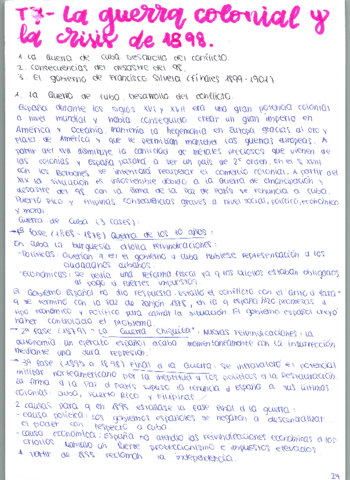 T7- La guerra colonial y
la crisis de 1898.
1. La Guerra de Cuba Desarrollo del conflicto.
2. consecuencias del desastre del 98.
3. El gobierno de Francisco Silvela (finales 1899-1901)
1. La Guerra de Cuba desarrollo del conflicto.
España durante los siglos XVI y XVII era una gran potencia colonial
a nivel mundial y había conseguido crear un gran imperio en
América y Oceanía. mantenía la hegemonía en Europa gracias al oro y
plata de América y que se permitían mantener las guerras europeas. A
partir del XVII disminuye la cantidad de metales preciosos que vienen de
las colonias y España pasará a ser un país de 2º orden, en el s. XVIII
con los Borbones se intentará recuperar el comercio colonial. A partir del
XIX la situación es insostenible debido a la guerra de emancipación y
desastre del 98 con la firma de la paz de París se renuncia a Cuba,
Puerto Rico y Filipinas. consecuencias graves a nivel social, político, económico
y moral.
Guerra de Cuba (3 fases):
1ª fase (1868-1878) Guerra de los 10 años:
En Cuba la burguesía criolla reivindicaciones:
-Políticas: querían q en el gobierno d Cuba hubiese representación d los
ciudadanos cubanos.
-económicas: se pedía una reforma fiscal ya q los criollos estaban obligados
al pago d fuertes impuestos
El Gobierno español no dio respuesta - estalló el conflicto con el Grito d Yara
q se terminó con la Paz de Zanjón 1878, en la q España hizo promesas d
tipo económico y político para calmar la situación. El gobierno español creyó
haber controlado el problema
2ª fase (1879) - La Guerra Chiquita - nuevas reivindicaciones - la
autonomía. un ejército español acaba momentáneamente con la insurrección
mediante una dura represión.
3ª fase (1895 a 1898) Final d la Guerra: se infravaloró el potencial
militar norteamericano por la ineptitud d los políticos d la Restauración
La firma d la Paz d París supuso la renuncia d España a sus últimas
colonias: Cuba, Puerto Rico y Filipinas.
2 causas para q en 1895 estallase la fase final d la guerra:
-causa política: Los gobiernos españoles se negaron a descentralizar
el poder con respecto a Cuba.
-causa económica: España no atendió las reivindicaciones económicas d los
criollos fuerte proteccionismo e impuestos elevados
A partir de 1895 reclaman la independencia.
24